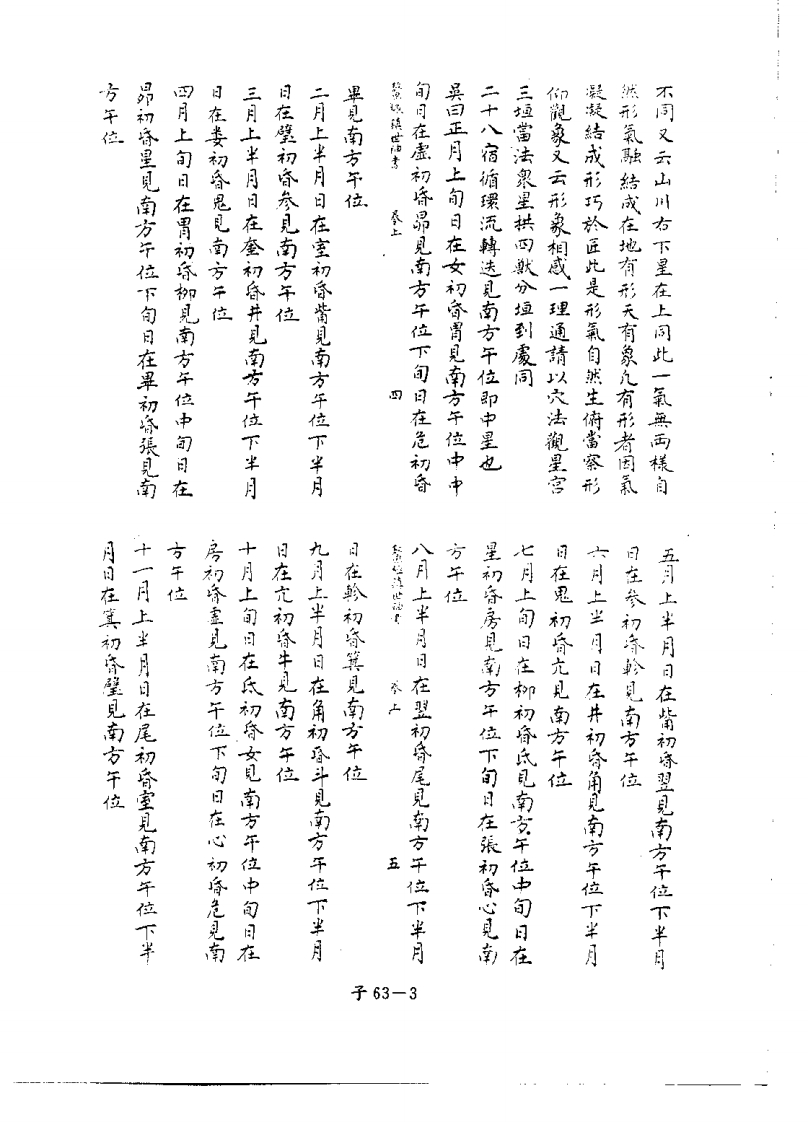 不同又云山川右下星在上同此一氣無兩樣自
然形氣融結成在地有形天有象凡有形者因氣
凝凝結成形巧於匠此是形氣自然生俯當察形
仰觀象又云形象相感一理通請以穴法觀星宮
三垣當法眾星拱四獸分垣到處同
二十八宿循環流轉迭見南方午位即中星也
吳曰正月上旬日在女初昏胃見南方午位中中
旬日在虛初昏昴見南方午位下旬日在危初昏
卷上 四
畢見南方午位
二月上半月日在室初昏觜見南方午位下半月
日在壁初昏參見南方午位
三月上半月日在奎初昏井見南方午位下半月
日在婁初昏鬼見南方午位
四月上旬日在胃初昏柳見南方午位中旬日在
昴初昏星見南方午位下旬日在畢初昏張見南
方午位
五月上半月日在觜初昏翌見南方午位下半月
日在參初昏軫見南方午位
六月上半月日在井初昏角見南方午位下半月
日在鬼初昏亢見南方午位
七月上旬日在柳初昏氐見南方午位中旬日在
星初昏房見南方午位下旬日在張初昏心見南
方午位
八月上半月日在翌初昏尾見南方午位下半月
卷上 五
日在軫初昏箕見南方午位
九月上半月日在角初昏斗見南方午位下半月
日在亢初昏牛見南方午位
十月上旬日在氐初昏女見南方午位中旬日在
房初昏虛見南方午位下旬日在心初昏危見南
方午位
十一月上半月日在尾初昏室見南方午位下半
月日在箕初昏壁見南方午位
子 63—3